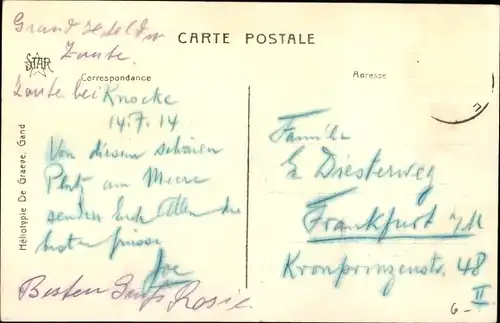 Grand Hotel du
Zoute.
STAR
CARTE POSTALE
Correspondance
Adresse
Zoute bei Knocke
14.7.14
Von diesem schönen
Platz am Meere
senden Euch Allen die
besten Grüsse
Joe
Besten Gruß Rosie
Héliotypie De Graeve, Gand
Familie
E Diesterweg
Frankfurt a/M
Kronprinzenstr. 48
II
6-